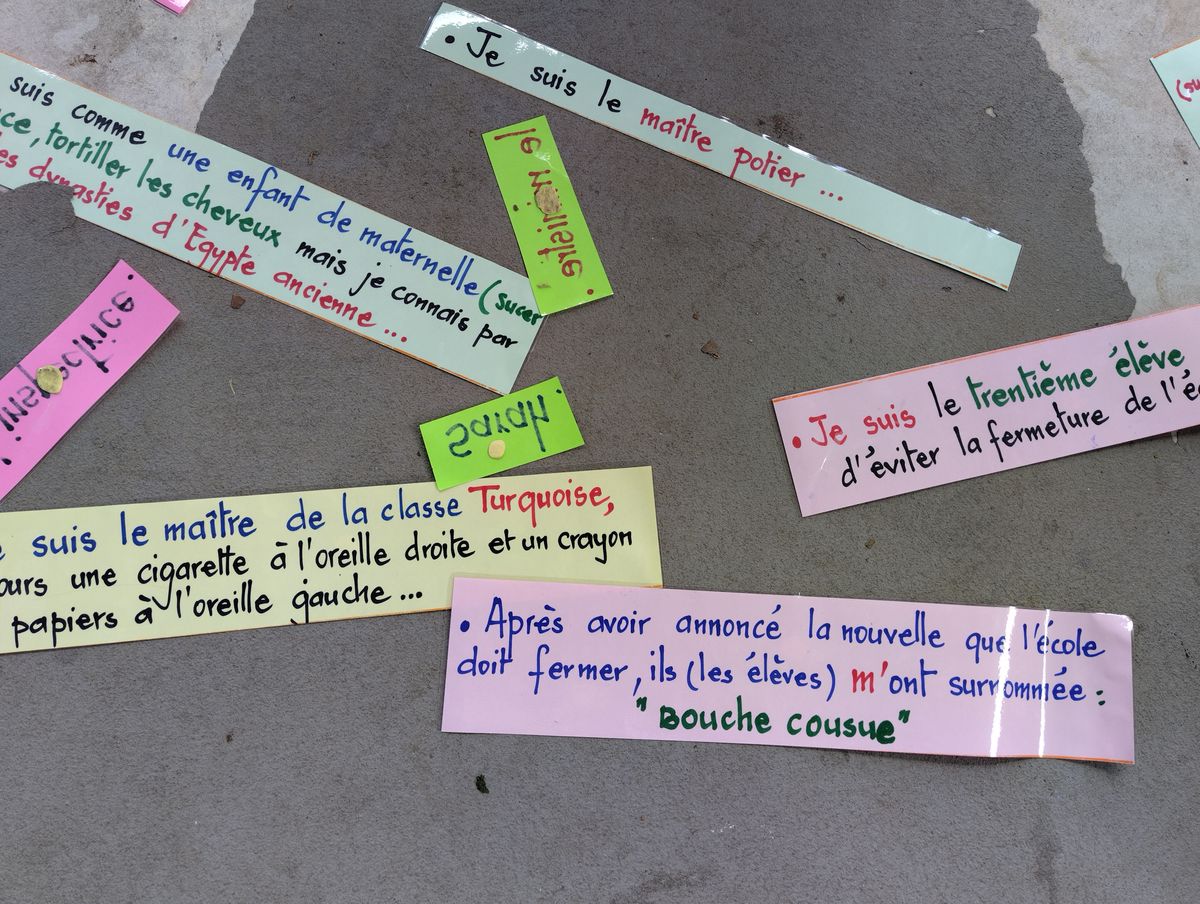 • Je suis le maître potier ...
suis comme une enfant de maternelle (sucer
ce, tortiller les cheveux mais je connais par
es dynasties d'Egypte ancienne ...
le ministre
(su
inspectrice
sarah
• Je suis le trentième élève
d'éviter la fermeture de l'é
suis le maître de la classe Turquoise,
ours une cigarette à l'oreille droite et un crayon
papiers à l'oreille gauche ...
• Après avoir annoncé la nouvelle que l'école
doit fermer, ils (les élèves) m'ont surnommée :
"Bouche cousue"